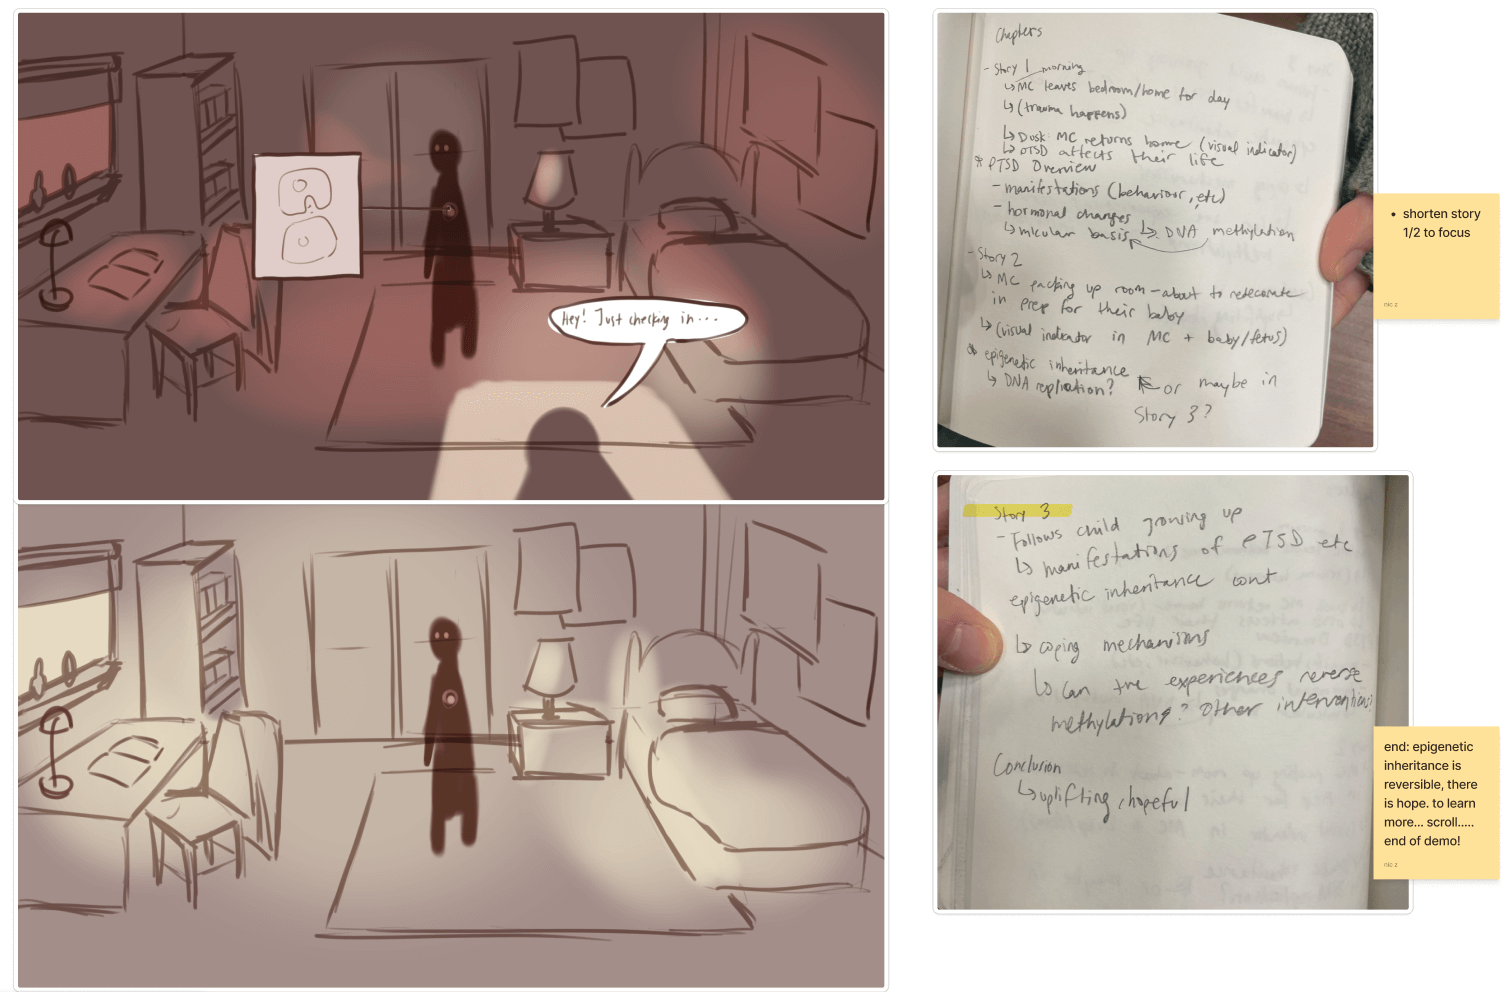 Hey! Just checking in...
Chapters
- Story 1 morning
↳ MC leaves bedroom/home for day
↳ (trauma happens)
↳ Dusk: MC returns home (visual indicator)
↳ PTSD affects their life
* PTSD Overview
- manifestations (behaviour, etc)
- hormonal changes
↳ basis ↳ DNA methylation
- Story 2
↳ MC packing up room - about to redecorate
in prep for their baby
↳ (visual indicator in MC + baby/fetus)
* epigenetic inheritance
↳ DNA replication? ← or maybe in
Story 3?
• shorten story
1/2 to focus
nic z
Story 3
- Follows child growing up
↳ manifestations of PTSD etc
epigenetic inheritance cont
↳ coping mechanisms
↳ can the experiences reverse
methylations? Other interventions
Conclusion
↳ uplifting, hopeful
end: epigenetic
inheritance is
reversible, there
is hope. to learn
more... scroll.....
end of demo!
nic z